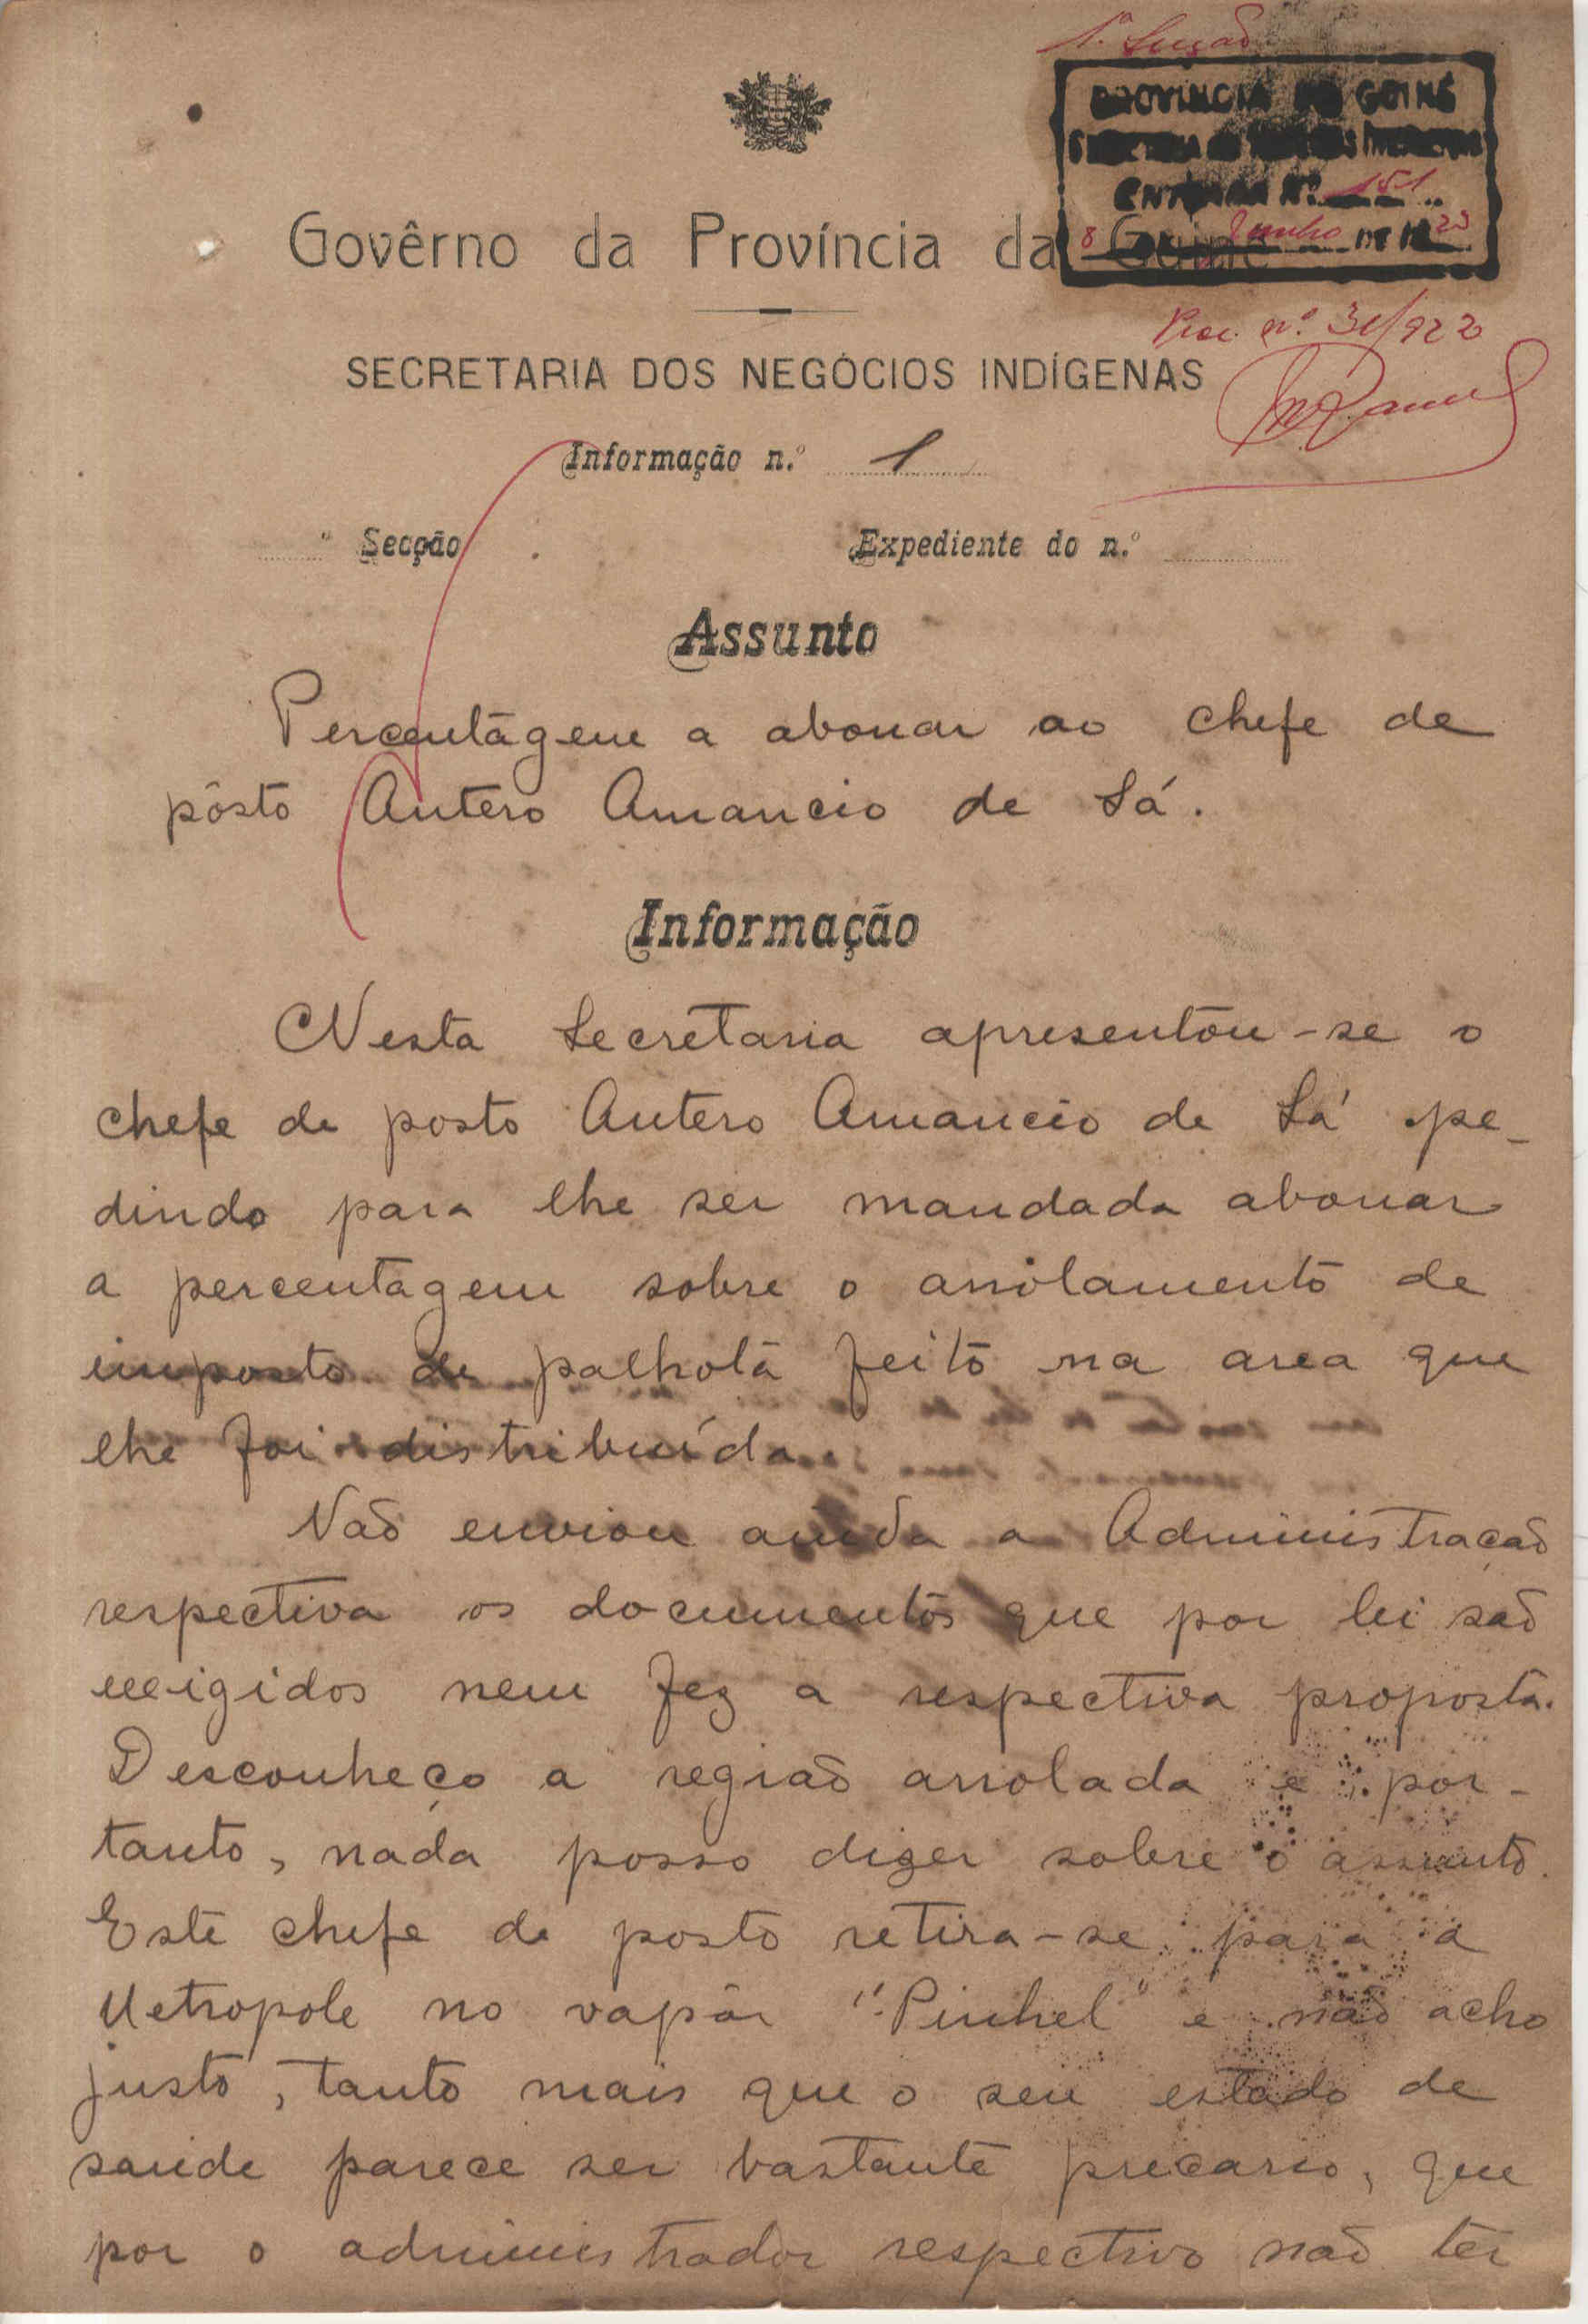 1.ª Secção
PROVINCIA DA GUINÉ
SECRETARIA DOS NEGOCIOS INDIGENAS
ENTRADA N.º 151
8 Junho DE 1923
Govêrno da Província da Guiné
Proc. n.º 31/922
SECRETARIA DOS NEGÓCIOS INDÍGENAS
Informação n.º 1
ª Secção Expediente do n.º
Assunto
Percentagem a abonar ao chefe de
pôsto Antero Amancio de Sá.
Informação
Nesta Secretaria apresentou-se o
chefe de posto Antero Amancio de Sá pe-
dindo para lhe ser mandada abonar
a percentagem sobre o arrolamento de
imposto de palhota feito na area que
lhe foi distribuída.
Não enviou ainda a Administração
respectiva os documentos que por lei são
exigidos nem fez a respectiva proposta.
Desconheço a região arrolada e por-
tanto, nada posso dizer sobre o assunto.
Este chefe de posto retira-se para a
Metropole no vapôr "Pinhel" e não acho
justo, tanto mais que o seu estado de
saude parece ser bastante precario, que
por o administrador respectivo não ter